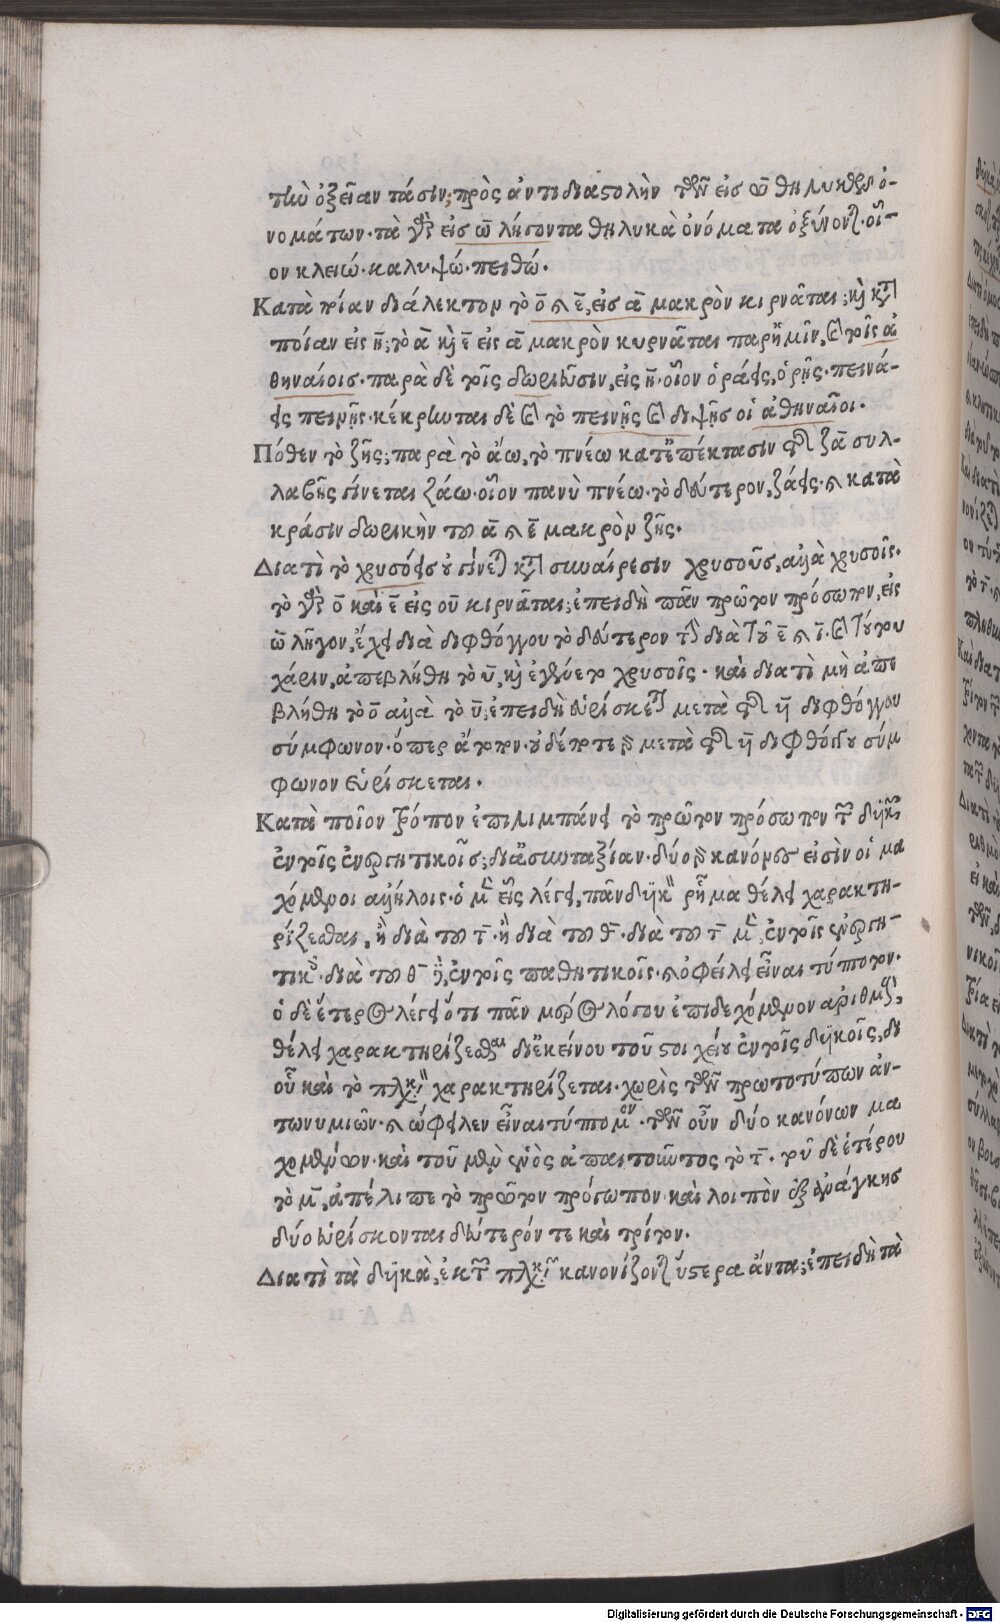 τὴν ὀξεῖαν τάσιν; πρὸς ἀντιδιαστολὴν τῶν εἰς ω̄ θηλυκῶν ὀ-
νομάτων· τὰ γὰρ εἰς ω̄ λήγοντα θηλυκὰ ὀνόματα ὀξύνονται· οἷ-
ον κλειώ· καλυψώ· πειθώ.
Κατὰ ποίαν διάλεκτον τὸ ο̄ καὶ ε̄, εἰς ᾱ μακρὸν κιρνᾶται; καὶ κατὰ
ποίαν εἰς η̄; τὸ ᾱ καὶ ε̄ εἰς ᾱ μακρὸν κυρνᾶται παρ' ἡμῖν, καὶ τοῖς ἀ
θηναίοις· παρὰ δὲ τοῖς δωριεῦσιν, εἰς η̄· οἷον ὁράεις, ὁρῇς· πεινά-
εις πεινῇς· κέκρηνται δὲ καὶ τὸ πεινῇς καὶ διψῇς οἱ ἀθηναῖοι.
Πόθεν τὸ ζῇς; παρὰ τὸ ἄω, τὸ πνέω κατ' ἐπέκτασιν τῆς ζᾱ συλ-
λαβῆς γίνεται ζάω· οἷον πανὺ πνέω· τὸ δεύτερον, ζάεις· καὶ κατὰ
κράσιν δωρικὴν τοῦ ᾱ καὶ ε̄ μακρὸν ζῇς.
Διατὶ τὸ χρυσόεις οὐ γίνεται κατὰ συναίρεσιν χρυσοῦς, ἀλλὰ χρυσοῖς·
τὸ γὰρ ο̄ καὶ ε̄ εἰς οῡ κιρνᾶται; ἐπειδὴ πᾶν πρῶτον πρόσωπον, εἰς
ω̄ λῆγον, ἔχει διὰ διφθόγγου τὸ δεύτερον διὰ τοῦ ε̄ καὶ ῑ· καὶ τούτου
χάριν, ἀπεβλήθη τὸ ῡ, καὶ ἐγένετο χρυσοῖς· καὶ διατὶ μὴ ἀπε
βλήθη τὸ ο̄ ἀλλὰ τὸ ῡ; ἐπειδὴ εὑρίσκεται μετὰ τῆς ῡῑ διφθόγγου
σύμφωνον· ὅπερ ἄτοπον· οὐδέποτε γὰρ μετὰ τῆς ῡῑ διφθόγγου σύμ
φωνον εὑρίσκεται.
Κατὰ ποῖον τρόπον ἐπιλιμπάνει τὸ πρῶτον πρόσωπον τῶν δυϊκῶν
ἐν τοῖς ἐνεργητικοῖς; διὰ συνταξίαν· δύο γὰρ κανόνες εἰσὶν οἱ μα
χόμενοι ἀλλήλοις· ὁ μὲν εἷς λέγει, πᾶν δυϊκὸν ῥῆμα θέλει χαρακτη-
ρίζεσθαι, ἢ διὰ τοῦ τ̄· ἢ διὰ τοῦ θ̄· διὰ τοῦ τ̄ μὲν, ἐν τοῖς ἐνεργη-
τικοῖς· διὰ τοῦ θ̄ δὲ, ἐν τοῖς παθητικοῖς· καὶ ὀφείλει εἶναι τύπτοτον·
ὁ δὲ ἕτερος λέγει ὅτι πᾶν μέρος λόγου ἐπιδεχόμενον ἀριθμοὺς,
θέλει χαρακτηρίζεσθαι δι' ἐκείνου τοῦ στοιχείου ἐν τοῖς δυϊκοῖς, δι'
οὗ καὶ τὸ πληθυντικὸν χαρακτηρίζεται· χωρὶς τῶν πρωτοτύπων ἀν-
τωνυμιῶν· καὶ ὤφειλεν εἶναι τύπτομον· τῶν οὖν δύο κανόνων μα
χομένων· καὶ τοῦ μὲν ἑνὸς ἀπαιτοῦντος τὸ τ̄· τοῦ δὲ ἑτέρου
τὸ μ̄, ἀπέλιπε τὸ πρῶτον πρόσωπον· καὶ λοιπὸν ἐξ ἀνάγκης
δύο εὑρίσκονται δεύτερόν τε καὶ τρίτον.
Διατὶ τὰ δυϊκὰ, ἐκ τῶν πληθυντικῶν κανονίζονται ὕστερα ὄντα; ἐπειδὴ τὰ